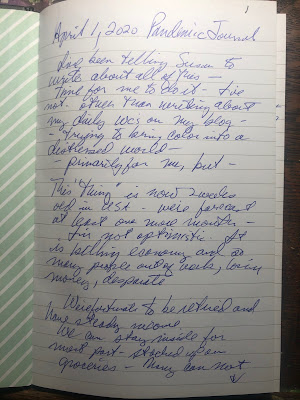 1
April 1, 2020 Pandemic Journal
I've been telling Susan to
write about all of this —
Time for me to do it - I've
not - other than writing about
my daily wc's on my blog -
- "Trying to bring color into a
distressed world —
- primarily for me, but -
This "thing" is now 2 weeks
old in USA - were forecast
at least one more month -
I'm not optimistic. It
is killing economy and so
many people out of work, losing
money, desperate
We're fortunate to be retired and
have steady income.
We can stay inside for
most part - stocked up on
groceries - Many can not